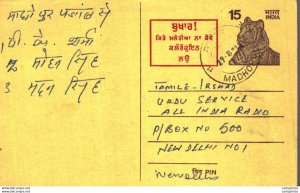 साधो पुर पंजाब से
2 मोहन सिंह
3 मदन सिंह
ਬੁਖਾਰ!
ਕਿਤੇ ਮਲੇਰੀਆ ਨਾ ਹੋਵੇ
ਕਲੋਰੋਕੁਇਨ
ਲਉ
15
भारत
INDIA
MADHO
TAMILE-IRSHAD
URDU SERVICE
ALL INDIA RADIO
P/BOX NO 500
NEW DELHI NO 1
पिन PIN
New Delhi